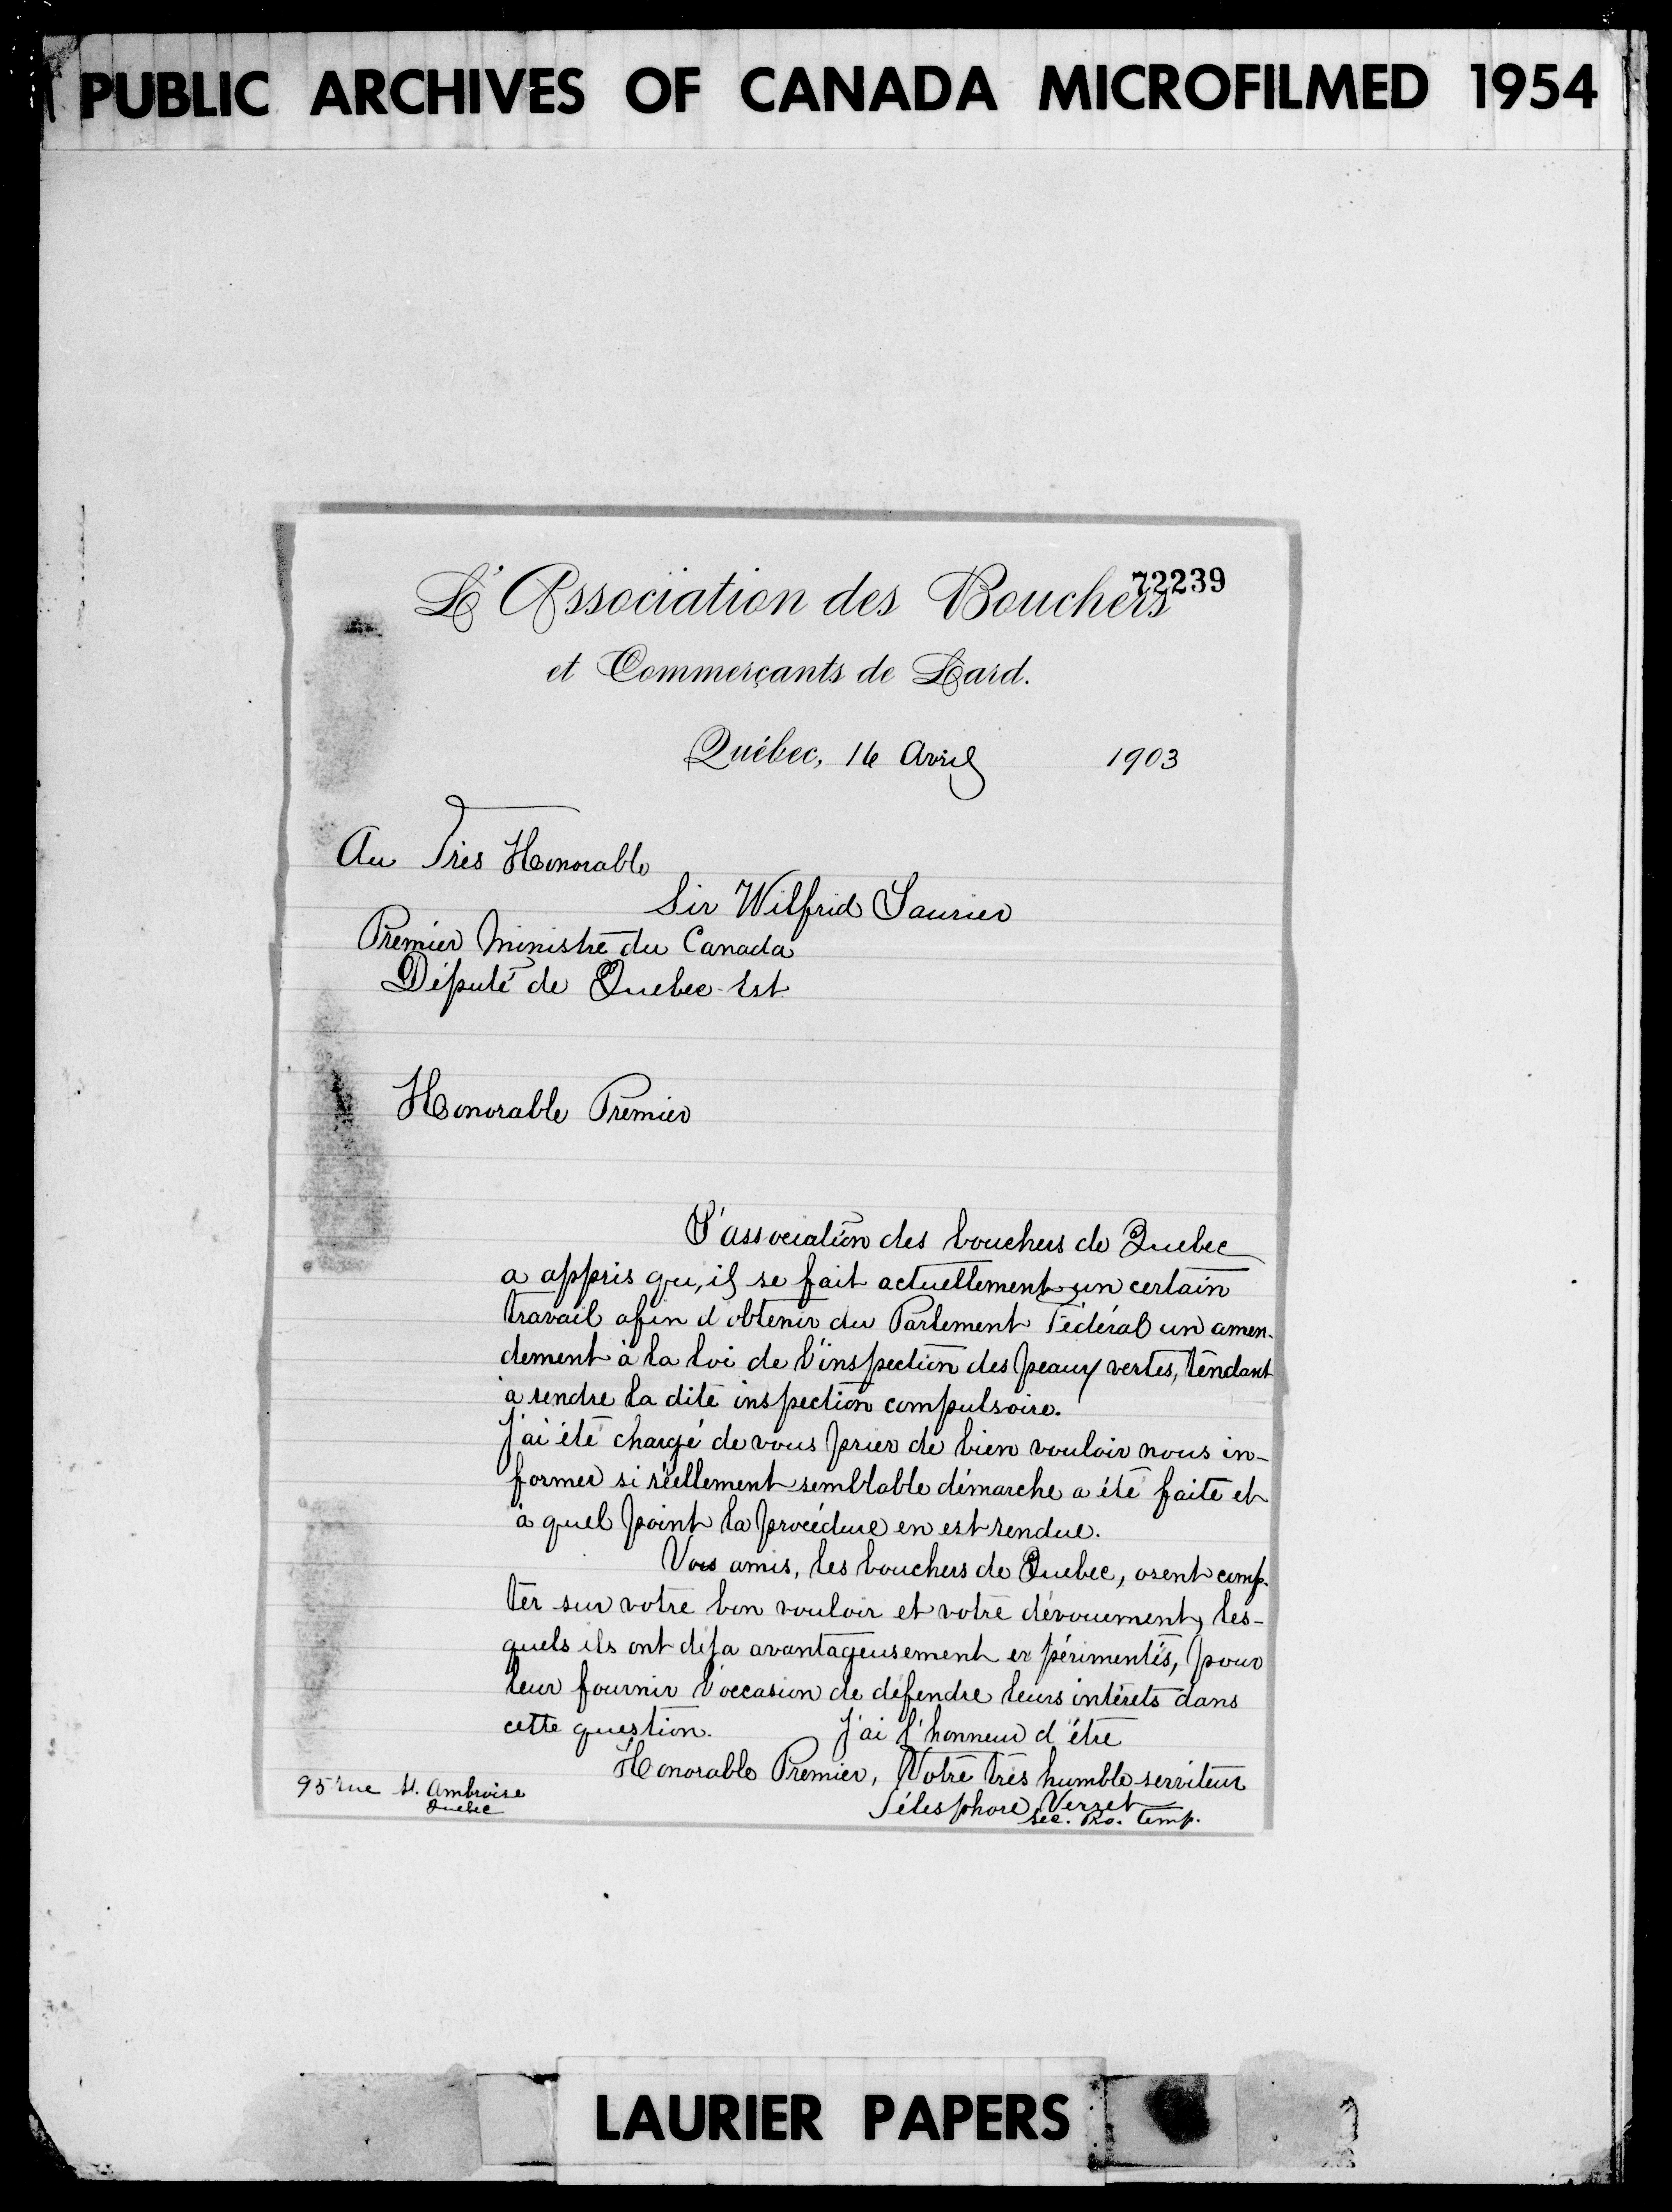 PUBLIC ARCHIVES OF CANADA MICROFILMED 1954
72239
L'Association des Bouchers
et Commerçants de Lard.
Québec, 16 Avril 1903
Au Très Honorable
Sir Wilfrid Laurier
Premier Ministre du Canada
Député de Quebec-Est
Honorable Premier
L'association des bouchers de Quebec
a appris qu'il se fait actuellement un certain
travail afin d'obtenir du Parlement Fédéral un amen-
dement à la loi de l'inspection des peaux vertes, tendant
à rendre la dite inspection compulsoire.
J'ai été chargé de vous prier de bien vouloir nous in-
former si réellement semblable démarche a été faite et
à quel point la procédure en est rendue.
Vos amis, les bouchers de Quebec, osent comp-
ter sur votre bon vouloir et votre dévouement, les-
quels ils ont déja avantageusement expérimentés, pour
leur fournir l'occasion de défendre leurs intérets dans
cette question. J'ai l'honneur d'être
Honorable Premier, Votre très humble serviteur
Télesphore Verret
Sec. Pro. Temp.
95 rue St. Ambroise
Quebec
LAURIER PAPERS